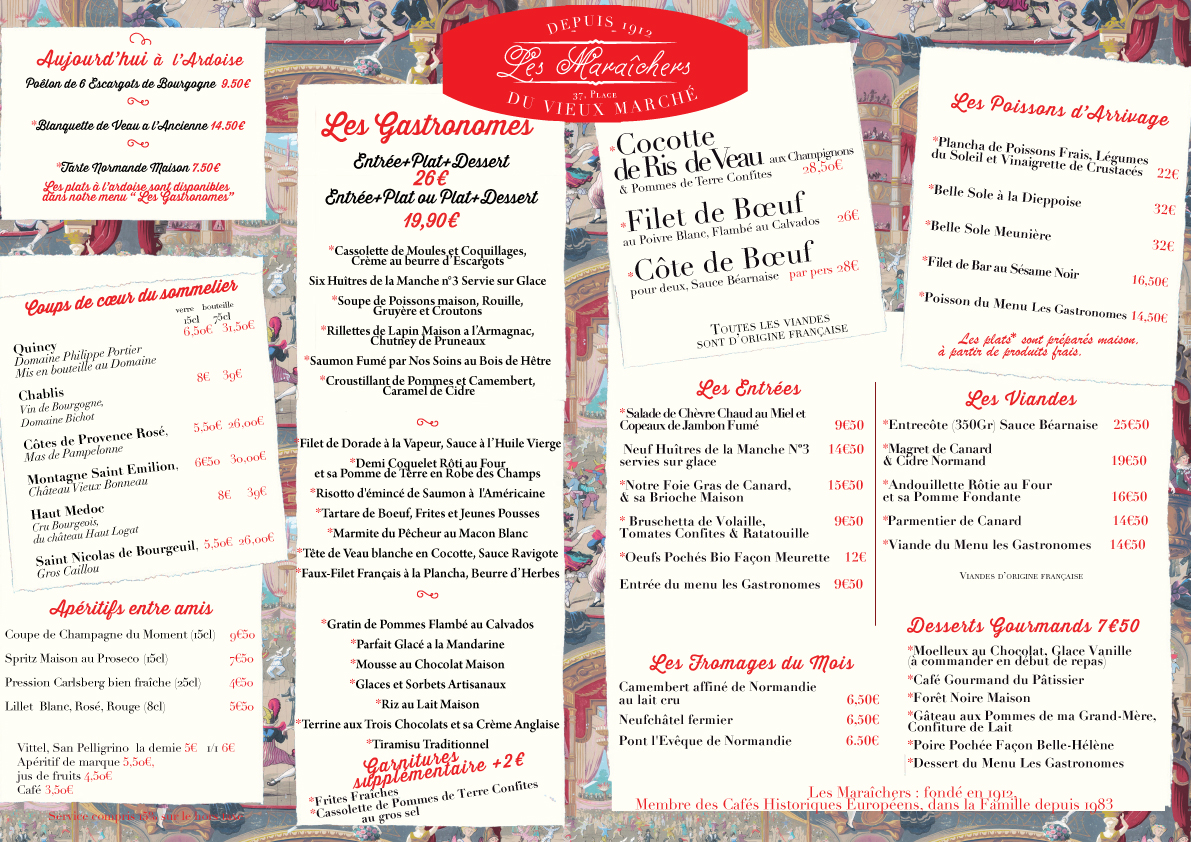 DEPUIS 1912
Les Maraîchers
37, Place
DU VIEUX MARCHÉ
Aujourd'hui à l'Ardoise
Poêlon de 6 Escargots de Bourgogne 9.50€
*Blanquette de Veau a l'Ancienne 14.50€
*Tarte Normande Maison 7.50€
Les plats à l'ardoise sont disponibles
dans notre menu " Les Gastronomes"
Coups de cœur du sommelier
verre bouteille
15cl 75cl
6,50€ 31,50€
Quincy
Domaine Philippe Portier
Mis en bouteille au Domaine
8€ 39€
Chablis
Vin de Bourgogne,
Domaine Bichot
Côtes de Provence Rosé, 5,50€ 26,00€
Mas de Pampelonne
Montagne Saint Emilion, 6€50 30,00€
Château Vieux Bonneau
8€ 39€
Haut Medoc
Cru Bourgeois,
du château Haut Logat
Saint Nicolas de Bourgeuil, 5,50€ 26,00€
Gros Caillou
Apéritifs entre amis
Coupe de Champagne du Moment (15cl) 9€50
Spritz Maison au Proseco (15cl) 7€50
Pression Carlsberg bien fraîche (25cl) 4€50
Lillet Blanc, Rosé, Rouge (8cl) 5€50
Vittel, San Pelligrino la demie 5€ 1/1 6€
Apéritif de marque 5,50€,
jus de fruits 4,50€
Café 3,50€
Service compris 15% sur le hors taxe
Les Gastronomes
Entrée+Plat+Dessert
26€
Entrée+Plat ou Plat+Dessert
19,90€
*Cassolette de Moules et Coquillages,
Crème au beurre d'Escargots
Six Huîtres de la Manche n°3 Servie sur Glace
*Soupe de Poissons maison, Rouille,
Gruyère et Croutons
*Rillettes de Lapin Maison a l'Armagnac,
Chutney de Pruneaux
*Saumon Fumé par Nos Soins au Bois de Hêtre
*Croustillant de Pommes et Camembert,
Caramel de Cidre
*Filet de Dorade à la Vapeur, Sauce à l'Huile Vierge
*Demi Coquelet Rôti au Four
et sa Pomme de Terre en Robe des Champs
*Risotto d'émincé de Saumon à l'Américaine
*Tartare de Boeuf, Frites et Jeunes Pousses
*Marmite du Pêcheur au Macon Blanc
*Tête de Veau blanche en Cocotte, Sauce Ravigote
*Faux-Filet Français à la Plancha, Beurre d'Herbes
*Gratin de Pommes Flambé au Calvados
*Parfait Glacé a la Mandarine
*Mousse au Chocolat Maison
*Glaces et Sorbets Artisanaux
*Riz au Lait Maison
*Terrine aux Trois Chocolats et sa Crème Anglaise
*Tiramisu Traditionnel
Garnitures
supplémentaire +2€
*Frites Fraîches
*Cassolette de Pommes de Terre Confites
au gros sel
*Cocotte
de Ris de Veau aux Champignons
& Pommes de Terre Confites 28,50€
*Filet de Bœuf
au Poivre Blanc, Flambé au Calvados 26€
*Côte de Bœuf
pour deux, Sauce Béarnaise par pers 28€
Toutes les viandes
sont d'origine française
Les Poissons d'Arrivage
*Plancha de Poissons Frais, Légumes
du Soleil et Vinaigrette de Crustacés 22€
*Belle Sole à la Dieppoise 32€
*Belle Sole Meunière 32€
*Filet de Bar au Sésame Noir 16,50€
*Poisson du Menu Les Gastronomes 14,50€
Les plats* sont préparés maison.
à partir de produits frais.
Les Entrées
*Salade de Chèvre Chaud au Miel et
Copeaux de Jambon Fumé 9€50
Neuf Huîtres de la Manche N°3 14€50
servies sur glace
*Notre Foie Gras de Canard, 15€50
& sa Brioche Maison
* Bruschetta de Volaille, 9€50
Tomates Confites & Ratatouille
*Oeufs Pochés Bio Façon Meurette 12€
Entrée du menu les Gastronomes 9€50
Les Viandes
*Entrecôte (350Gr) Sauce Béarnaise 25€50
*Magret de Canard
& Cidre Normand 19€50
*Andouillette Rôtie au Four
et sa Pomme Fondante 16€50
*Parmentier de Canard 14€50
*Viande du Menu les Gastronomes 14€50
Viandes d'origine française
Les Fromages du Mois
Camembert affiné de Normandie
au lait cru 6,50€
Neufchâtel fermier 6.50€
Pont l'Evêque de Normandie 6.50€
Desserts Gourmands 7€50
*Moelleux au Chocolat, Glace Vanille
(à commander en début de repas)
*Café Gourmand du Pâtissier
*Forêt Noire Maison
*Gâteau aux Pommes de ma Grand-Mère,
Confiture de Lait
*Poire Pochée Façon Belle-Hélène
*Dessert du Menu Les Gastronomes
Les Maraîchers : fondé en 1912,
Membre des Cafés Historiques Européens, dans la Famille depuis 1983